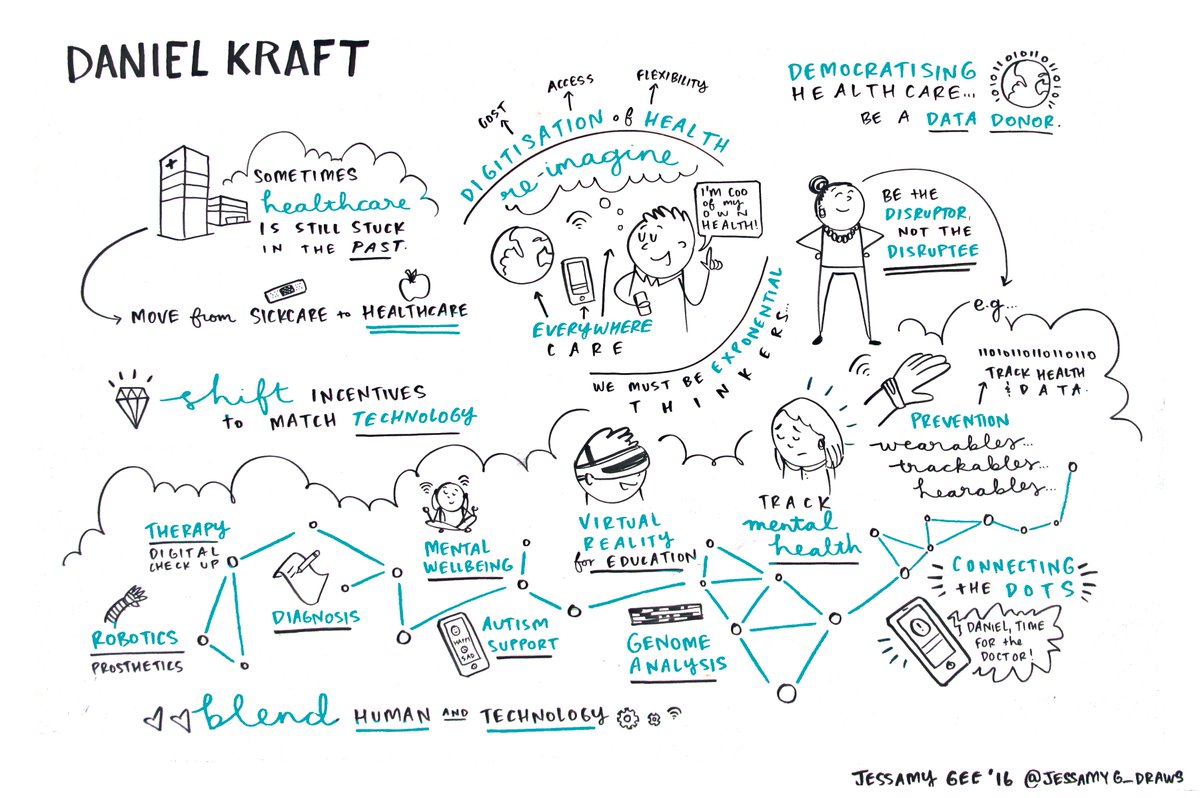 DANIEL KRAFT
SOMETIMES
healthcare
IS STILL STUCK
IN THE PAST.
MOVE from SICKCARE to HEALTHCARE
shift INCENTIVES
to MATCH TECHNOLOGY
COST
ACCESS
FLEXIBILITY
DIGITISATION of HEALTH
re-imagine
I'M COO
of my
OWN
HEALTH!
EVERYWHERE
CARE
WE MUST BE EXPONENTIAL
THINKERS...
DEMOCRATISING
HEALTHCARE...
BE A DATA DONOR.
01011010110101011
BE THE
DISRUPTOR,
NOT THE
DISRUPTEE
e.g...
11010110110110
TRACK HEALTH
& DATA.
PREVENTION
wearables...
trackables...
hearables...
THERAPY
DIGITAL
CHECK UP
ROBOTICS
PROSTHETICS
DIAGNOSIS
MENTAL
WELLBEING
HAPPY
SAD
AUTISM
SUPPORT
VIRTUAL
REALITY
for EDUCATION
GENOME
ANALYSIS
TRACK
mental
health
CONNECTING
the DOTS
DANIEL, TIME
FOR the
DOCTOR!
blend HUMAN AND TECHNOLOGY
JESSAMY GEE '16 @JESSAMYG_DRAWS